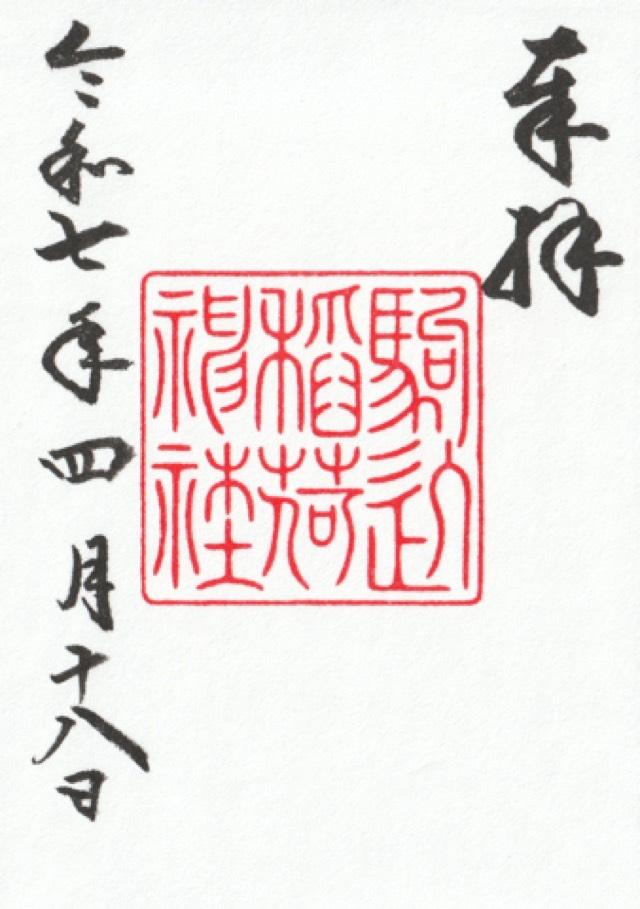 奉拝
駒込
稲荷
神社
令和七年四月十八日